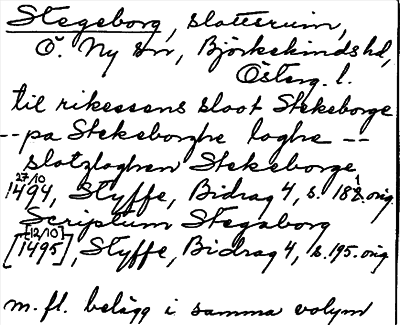 Stegeborg, slottsruin,
Ö. Ny sn, Björkekinds hd,
Österg. l.
til rikessens sloot Stekeborge
-- pa Stekeborghe loghe --
slotzloghen Stekeborge
27/10
1494, Styffe, Bidrag 4, s. 182. orig.
Scriptum Stegaborg
[12/10]
[1495], Styffe, Bidrag 4, s. 195. orig
m. fl. belägg i samma volym